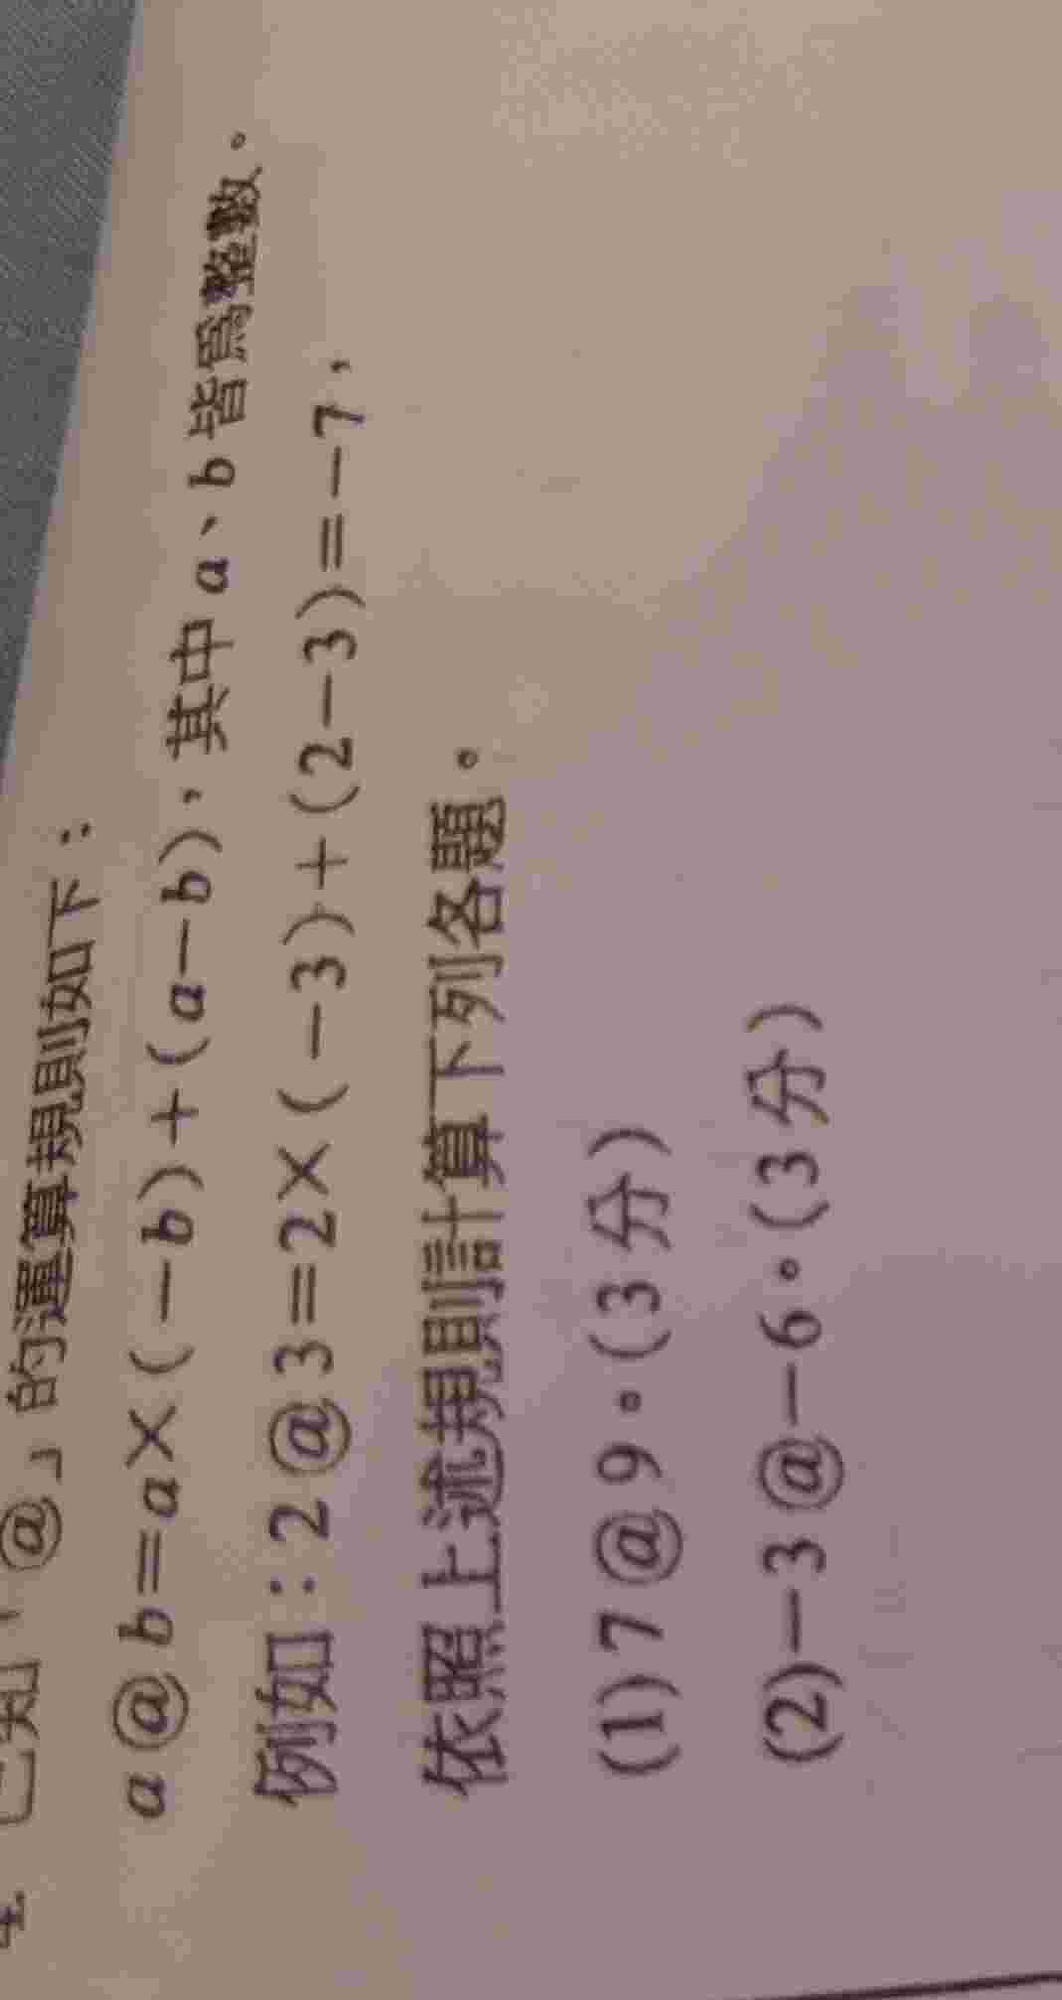 4. 已知「@」的運算規則如下：
a@b=a×(-b)+(a-b)，其中 a、b 皆為整數。
例如：2@3=2×(-3)+(2-3)=-7，
依照上述規則計算下列各題。
(1) 7@9。(3分)
(2) -3@-6。(3分)